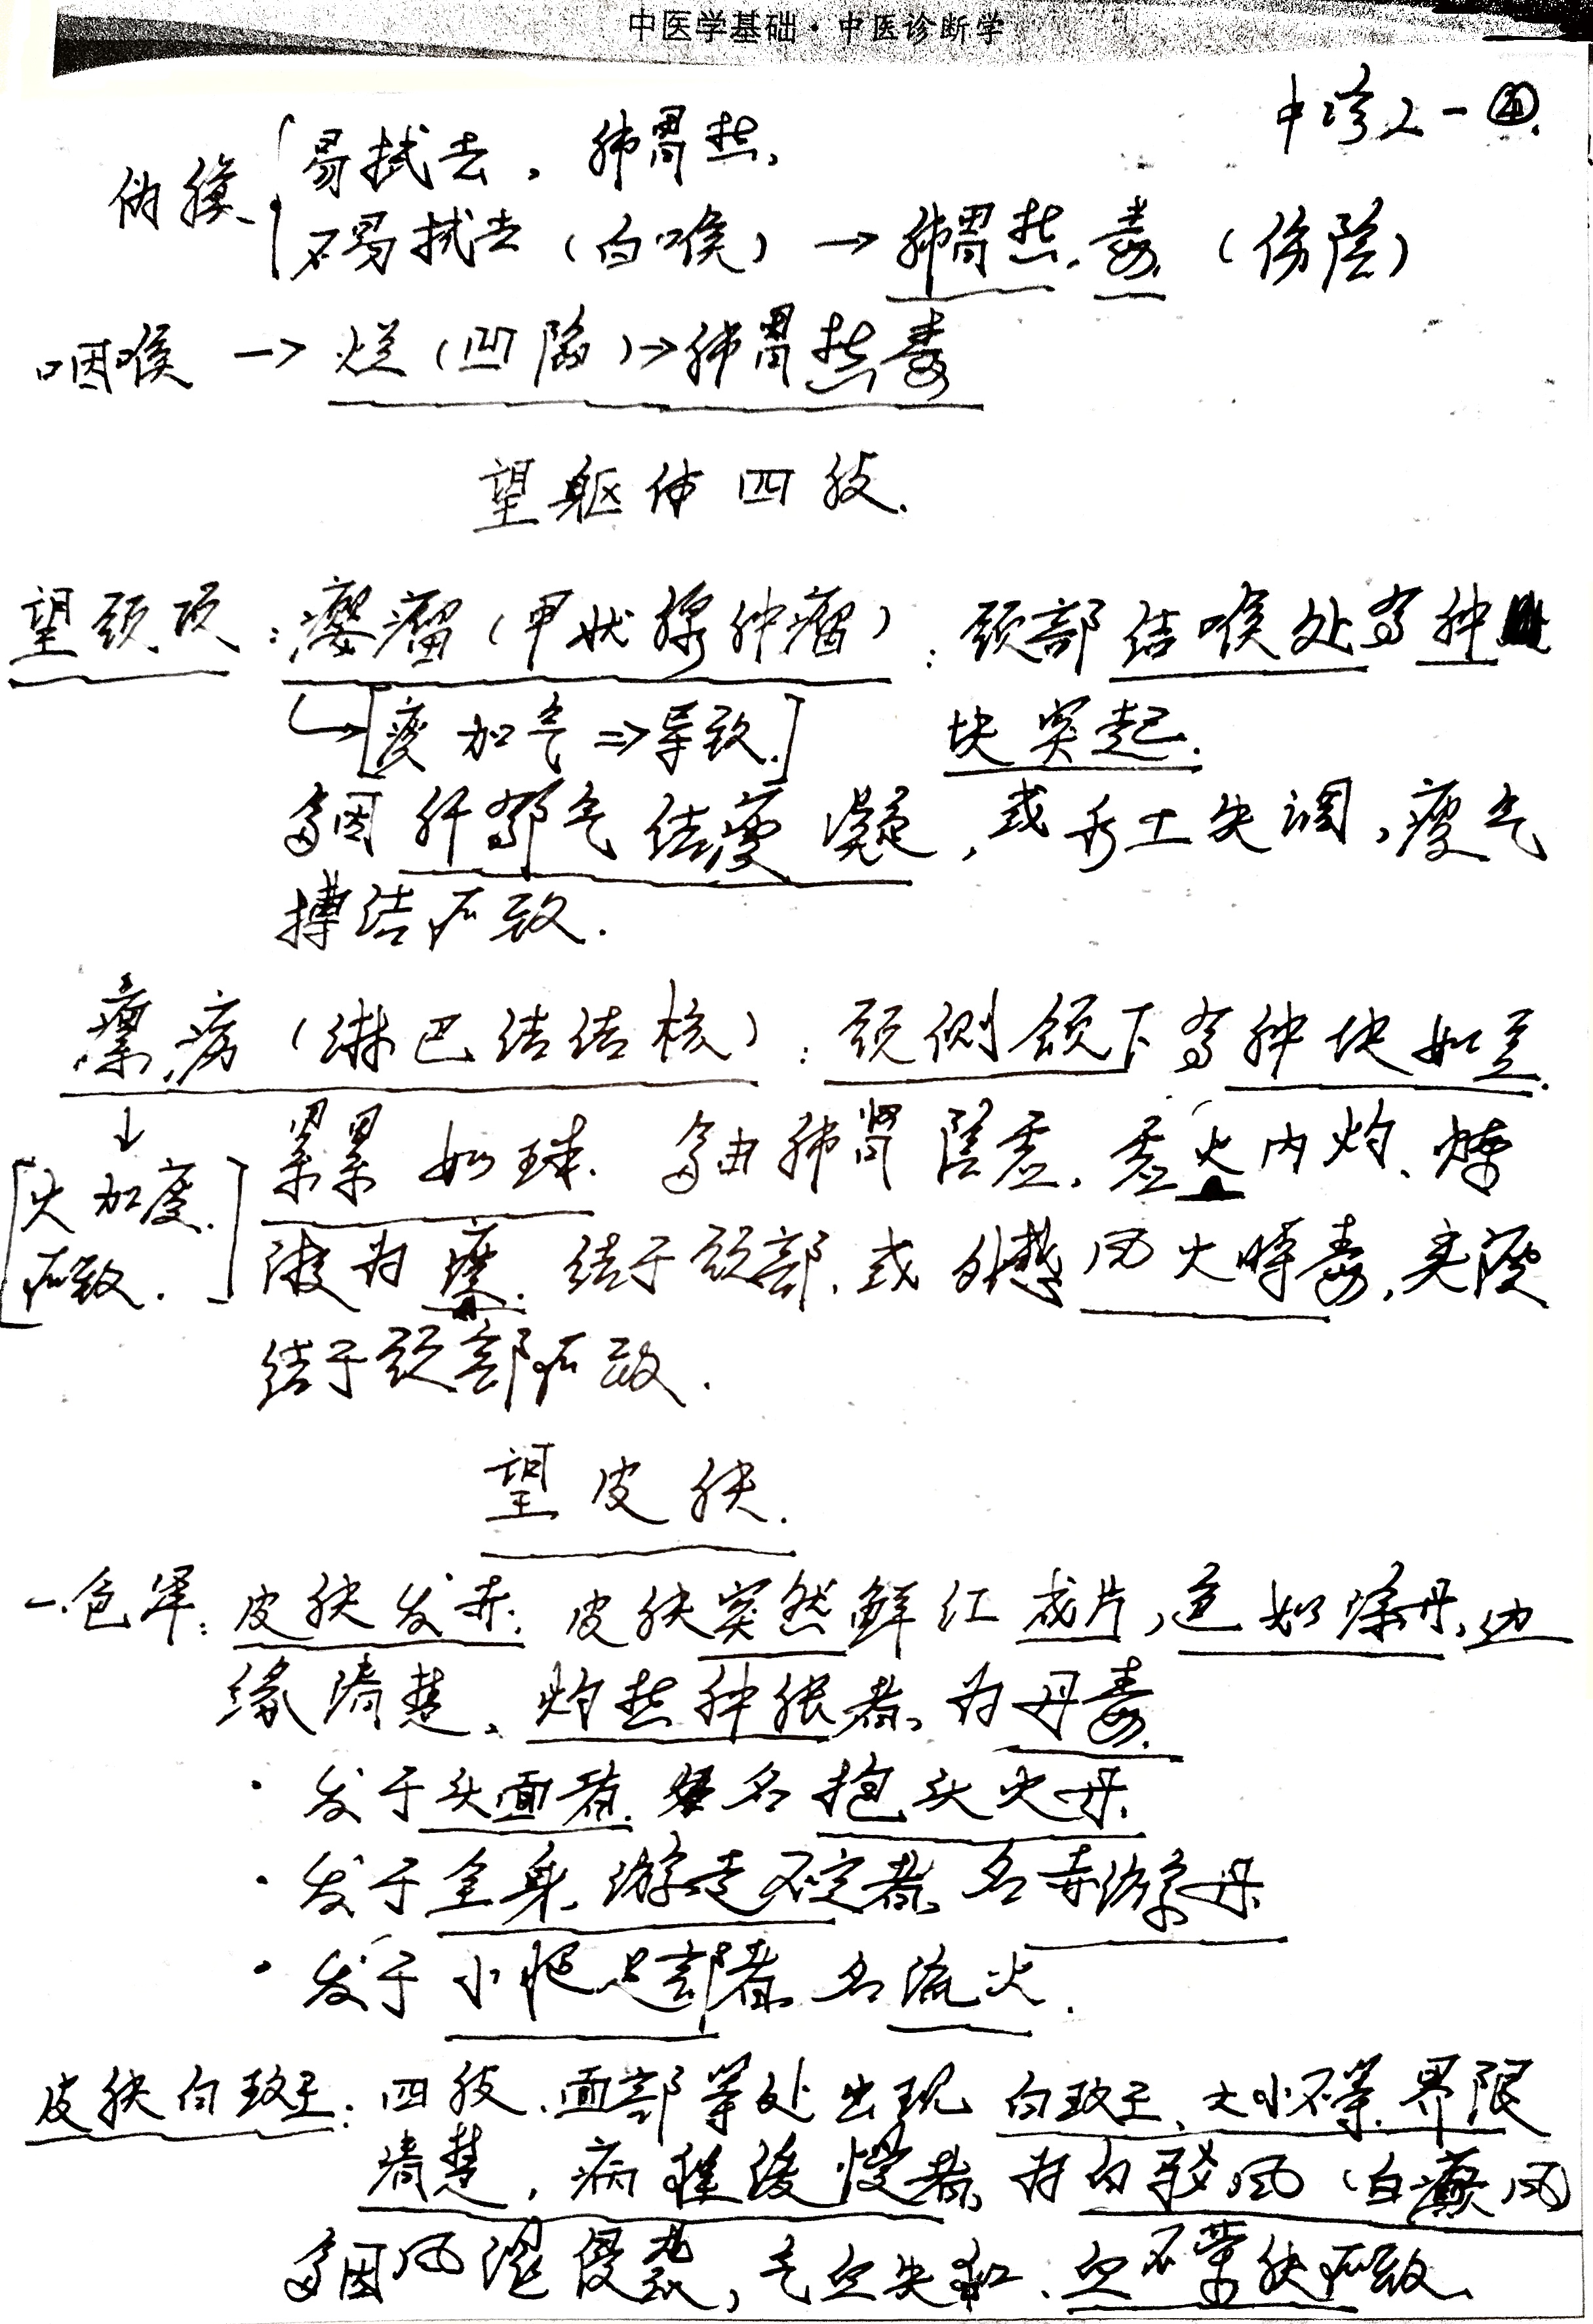 中医学基础·中医诊断学
中诊2-④.
伪膜 易拭去, 肺胃热,
不易拭去(白喉)→肺胃热,毒.(伤阴)
咽喉→烂(凹陷)→肺胃热毒
望躯体四肢.
望颈项:瘿瘤(甲状腺肿瘤):颈部结喉处有肿
[痰加气⇒导致.] 块突起.
多因肝郁气结痰凝,或水土失调,痰气
搏结所致.
瘰疬(淋巴结结核):颈侧颌下有肿块如豆.
↓ 累累如珠. 多由肺肾阴虚,虚火内灼、炼
[火加痰.所致.] 液为痰.结于颈部,或外感风火时毒,夹痰
结于颈部所致.
望皮肤.
一.色泽:皮肤发赤:皮肤突然鲜红成片,色如涂丹,边
缘清楚、灼热肿胀者,为丹毒.
·发于头面者.名抱头火丹.
·发于全身,游走不定者,名赤游丹.
·发于小腿足部者,名流火.
皮肤白斑:四肢、面部等处出现白斑、大小不等.界限
清楚,病程缓慢者,为白驳风(白癜风
多因风湿侵袭,气血失和、血不荣肤所致.